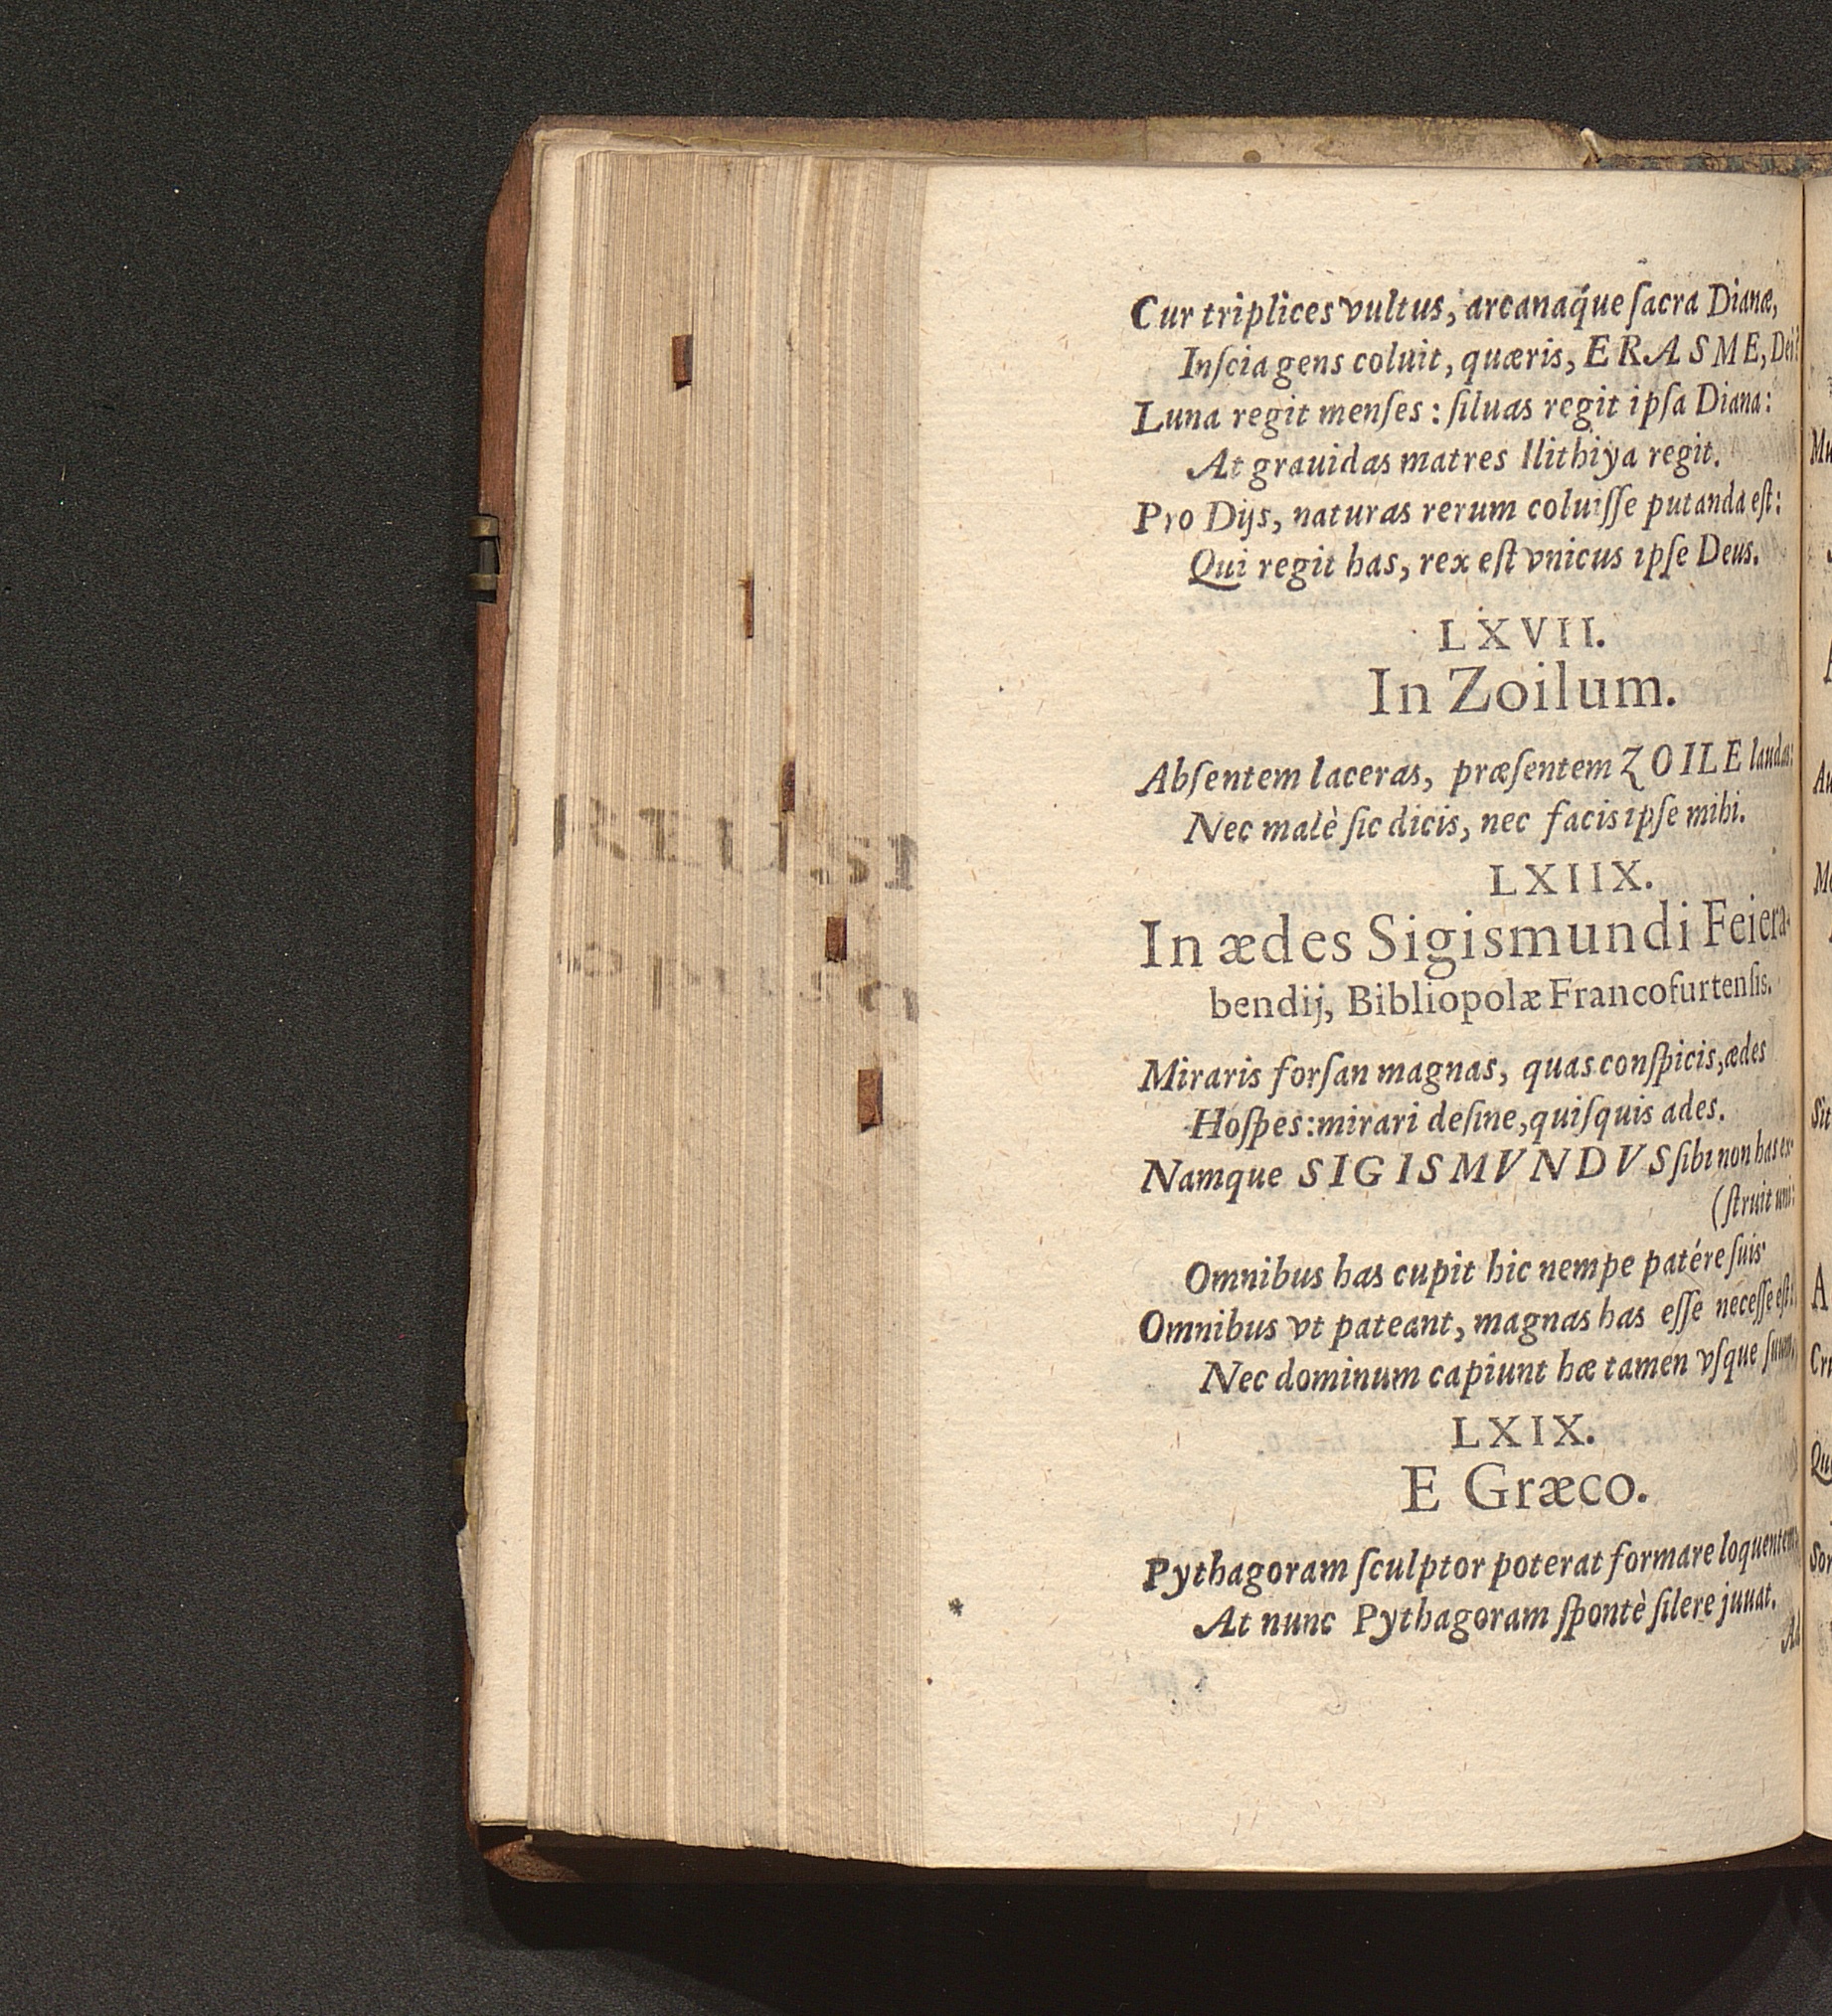 Cur triplices vultus, arcanaq́ue ſacra Dianæ,
Inſcia gens coluit, quæris, ERASME, Dei?
Luna regit menſes: ſiluas regit ipſa Diana:
At grauidas matres Ilithiya regit.
Pro Dijs, naturas rerum coluiſſe putanda eſt:
Qui regit has, rex eſt vnicus ipſe Deus.
LXVII.
In Zoilum.
Abſentem laceras, præſentem ZOILE laudas:
Nec malè ſic dicis, nec facis ipſe mihi.
LXIIX.
In ædes Sigismundi Feiera-
bendij, Bibliopolæ Francofurtenſis.
Miraris forſan magnas, quas conſpicis, ædes
Hoſpes: mirari deſine, quiſquis ades.
Namque SIGISMVNDVS ſibi non has ex-
(ſtruit uni:
Omnibus has cupit hic nempe patére ſuis
Omnibus vt pateant, magnas has eſſe neceſſe eſt:
Nec dominum capiunt hæ tamen vſque ſuum.
LXIX.
E Græco.
Pythagoram ſculptor poterat formare loquentem:
At nunc Pythagoram ſpontè ſilere juuat.
Ad